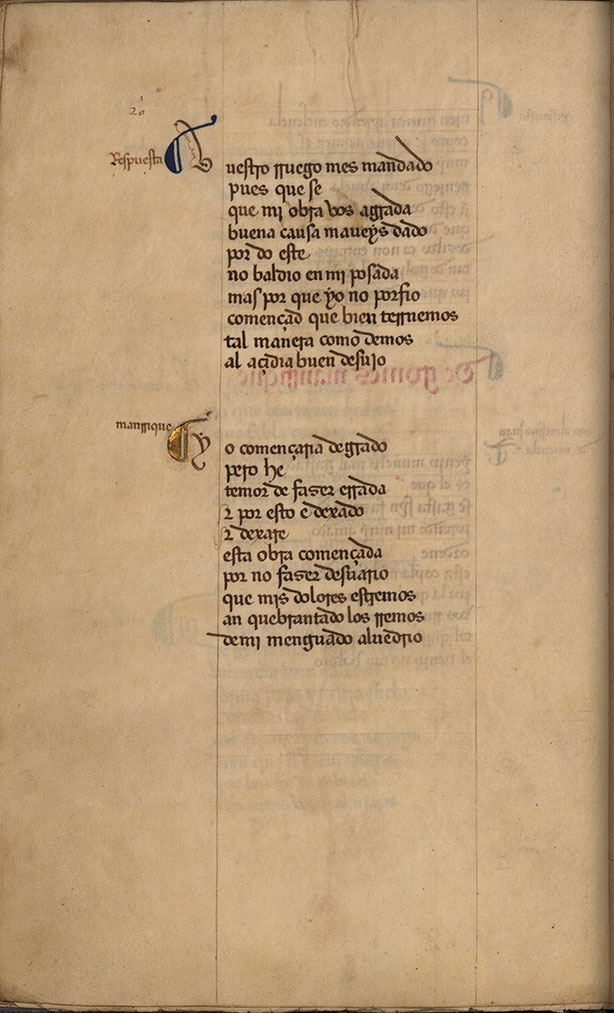 20
Respuesta
Vuestro rruego mes mandado
pues que se
que mi obra vos agrada
buena causa maueys dado
por do este
no baldio en mi posada
mas por que yo no porfio
començad que bien ternuemos
tal manera como demos
al açidia buen desuio
manrrique
Yo començaria de grado
pero he
temor de faser errada
z por esto e dexado
z dexare
esta obra començada
por no faser desuario
que mis dolores estremos
an quebrantado los rremos
de mi menguado aluedrio